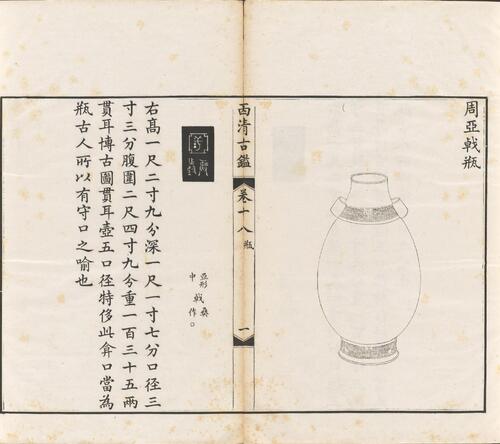 周亞戟瓶
西清古鑑
卷十八
瓶
一
亞形
中
戟
作
右高一尺二寸九分深一尺一寸七分口徑三
寸三分腹圍二尺四寸九分重一百三十五兩
貫耳博古圖貫耳壺五口徑特侈此弇口當為
瓶古人所以有守口之喻也